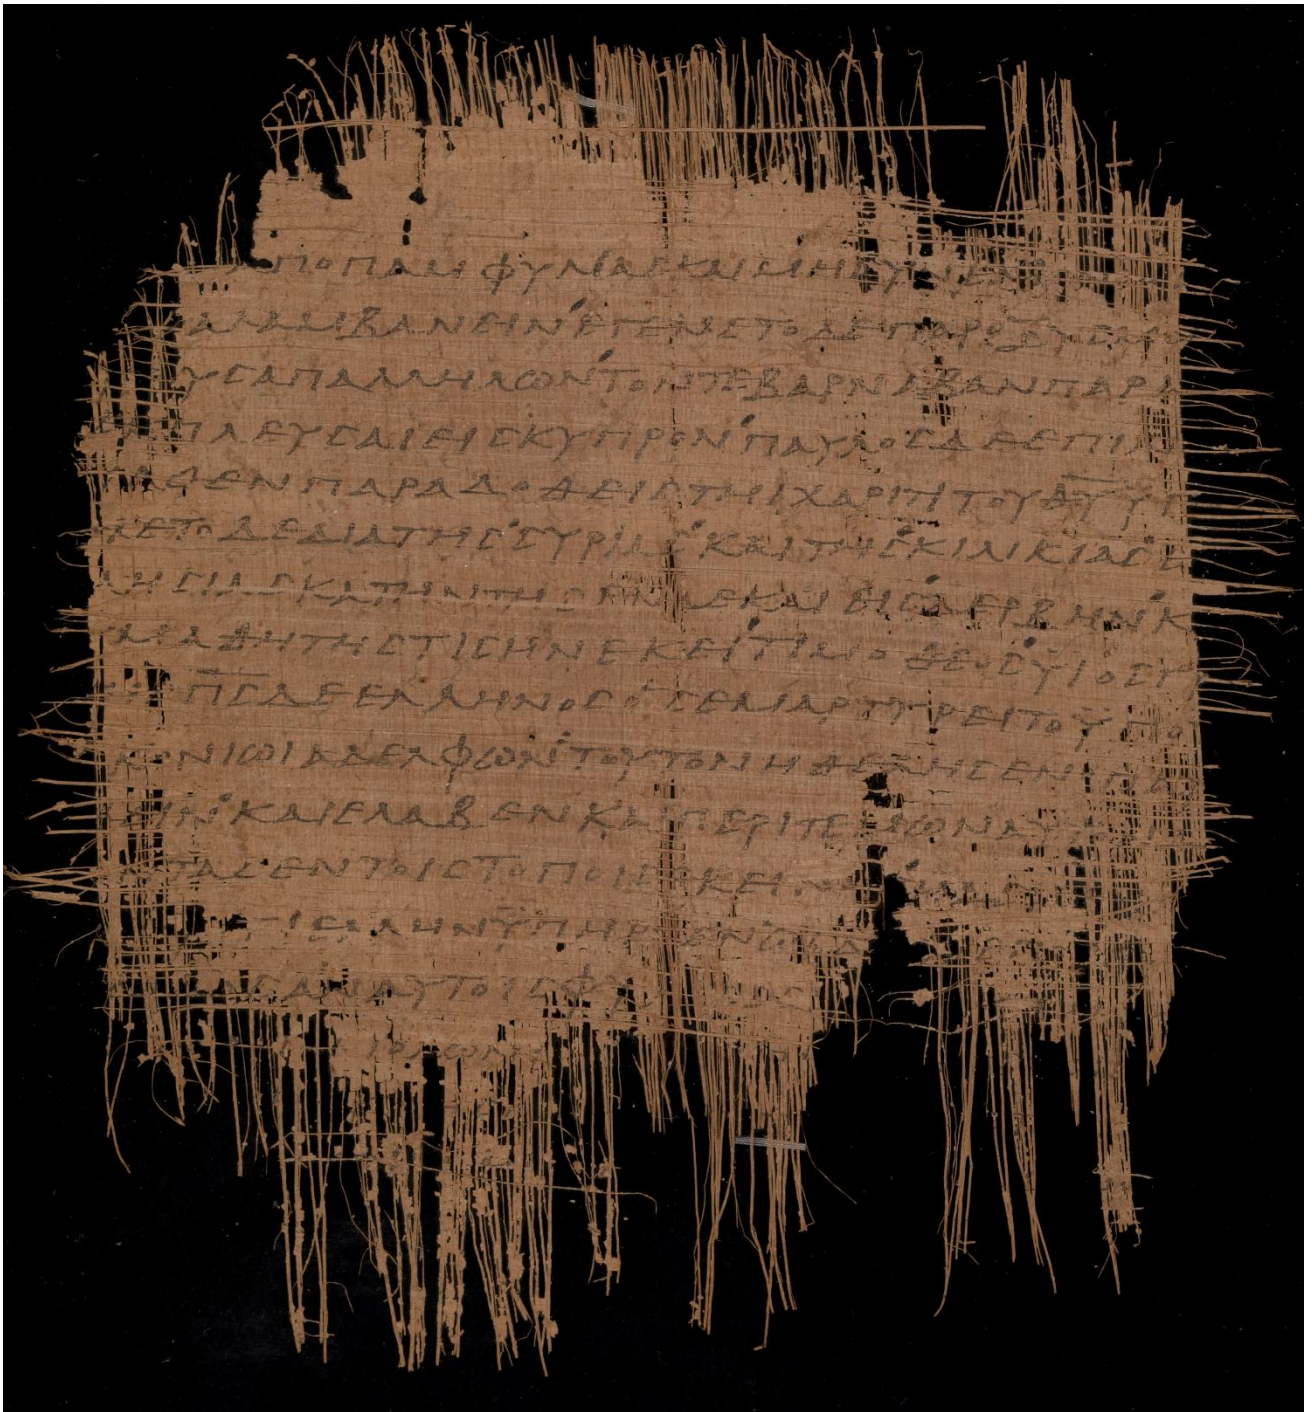 ΑΠΟΠΑΜΦΥΛΙΑϹΚΑΙΜΗϹΥΝΕΛ
ΛΑΜΒΑΝΕΙΝ ΕΓΕΝΕΤΟΔΕΠΑΡΟΞΥϹΜΟ
ΥϹΑΠΑΛΛΗΛΩΝ ΤΟΝΤΕΒΑΡΝΑΒΑΝΠΑΡΑ
ΠΛΕΥϹΑΙΕΙϹΚΥΠΡΟΝ ΠΑΥΛΟϹΔΕΕΠΙΛ
ΘΕΝΠΑΡΑΔΟΘΕΙϹΤΗΙΧΑΡΙΤΙΤΟΥΘ̅Υ̅ΥΠ
ΧΕΤΟΔΕΔΙΑΤΗϹϹΥΡΙΑϹΚΑΙΤΗϹΚΙΛΙΚΙΑϹΕ
ΛΗϹΙΑϹΚΑΤΗΝΤΗϹΕΝΔΕΚΑΙΕΙϹΔΕΡΒΗΝΚ
ΜΑΘΗΤΗϹΤΙϹΗΝΕΚΕΙΤΙΜΟΘΕΟϹΥΙΟϹΓΥ
Π̅Ϲ̅ΔΕΕΛΛΗΝΟϹΟϹΕΜΑΡΤΥΡΕΙΤΟΥΠΟ
ΚΟΝΙΩΙΑΔΕΛΦΩΝ ΤΟΥΤΟΝΗΘΕΛΗϹΕΝΟΠ
ΕΙΝ ΚΑΙΕΛΑΒΕΝΚΑΙΠΕΡΙΤΕΜΩΝΑΥΤΟΝ
ΤΑϹΕΝΤΟΙϹΤΟΠΟΙϹΕΚΕΙΝ
ΕΛΛΗΝΥΠΗΡΧΕΝ
ΑΥΤΟΙϹΦΥ